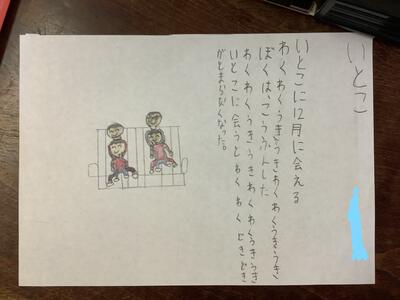 いとこ
いとこに12月に会える
わくわくうきうきわくわくうきうき
ぼくは、こうふんした
わくわくうきうきわくわくうきうき
いとこに会うとわくわくどきどき
がとまらなくなった。